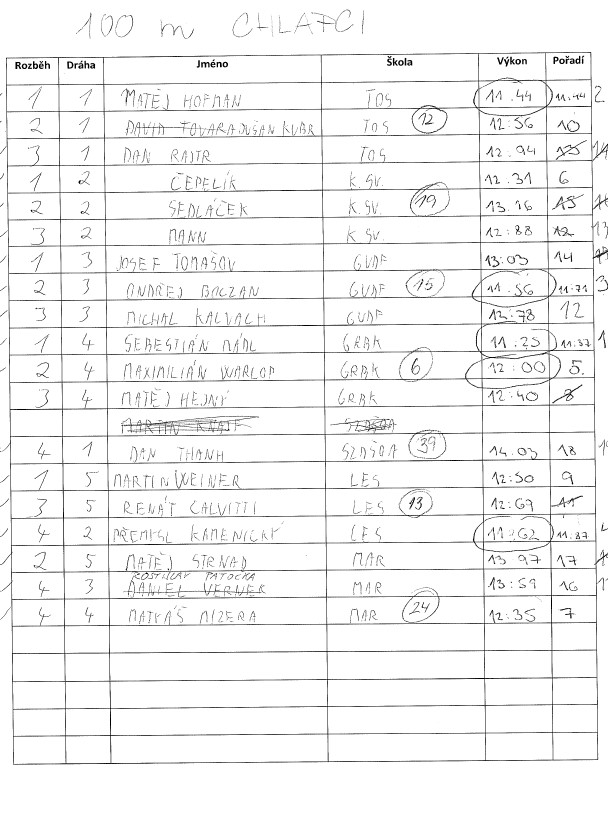 100 m CHLAPCI
Rozběh Dráha Jméno Škola Výkon Pořadí
1 1 MATĚJ HOFMAN TOS 11.44 11.44 2
2 1 DAVID TOVARA DUŠAN KUBR TOS 12 12:56 10
3 1 DAN RAJTR TOS 12.94 13
1 2 ČEPELÍK K.SV. 12.31 6
2 2 SEDLÁČEK K.SV. 19 13.16 15
3 2 MANN K.SV. 12:88 12 13
1 3 JOSEF TOMAŠOV GVDF 13:03 14
2 3 ONDŘEJ BOCZAN GVDF 15 11.56 11:71 3
3 3 MICHAL KALVACH GVDF 12:78 12
1 4 SEBESTIÁN MÁDL GRBK 11.25 11:37 1
2 4 MAXIMILIÁN WARLOP GRBK 6 12:00 5.
3 4 MATĚJ HEJNÝ GRBK 12:40 8
MARTIN SZDŠDA
4 1 DAN THANH SZDŠDA 39 14.03 18
1 5 MARTIN WEINER LES 12:50 9
3 5 RENÁT CALVITTI LES 13 12:69 11
4 2 PŘEMYSL KAMENICKÝ LES 11:62 11.87 4
2 5 MATĚJ STRNAD MAR 13 97 17
ROSTISLAV PATOČKA
4 3 DANIEL VERNER MAR 13:59 16
4 4 MATYÁŠ MIZERA MAR 24 12:35 7